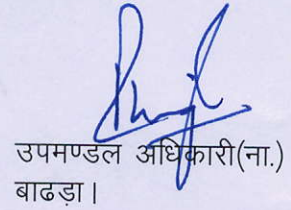 उपमण्डल अधिकारी(ना.)
बाढड़ा।